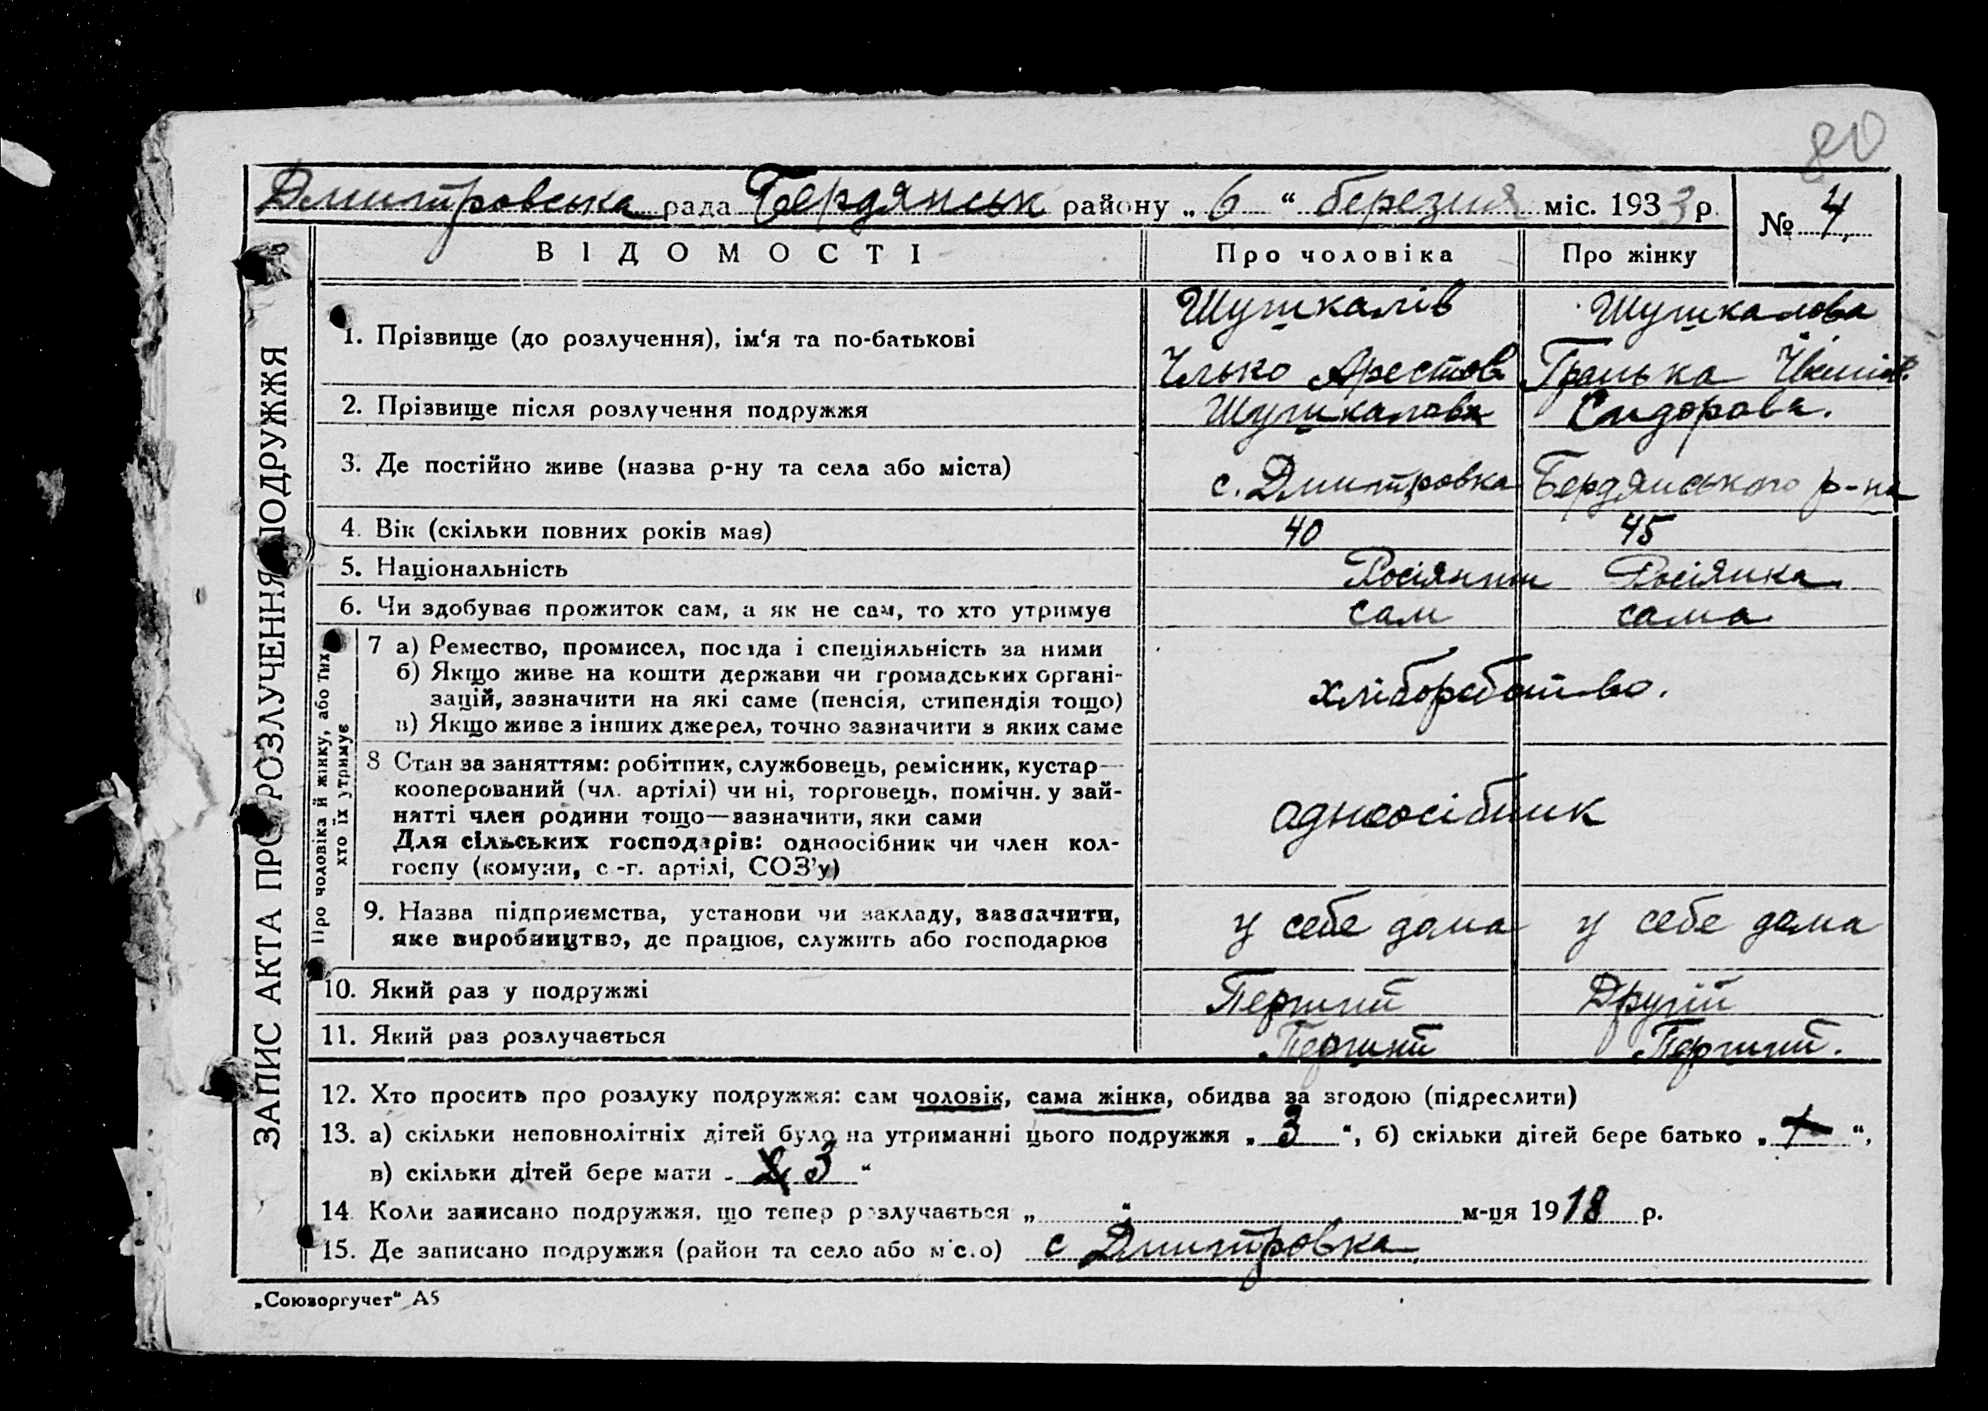 80
Дмитровська рада Бердянськ району „ 6 “ березня міс. 1933 р.
№ 4
ВІДОМОСТІ Про чоловіка Про жінку
ЗАПИС АКТА ПРО РОЗЛУЧЕННЯ ПОДРУЖЖЯ
1. Прізвище (до розлучення), ім‘я та по-батькові
Шушкалів Шушкалова
Ілько Арестов.
2. Прізвище після розлучення подружжя Шушкалова Сидорова.
3. Де постійно живе (назва р-ну та села або міста) с. Дмитровка Бердянського р-на
4. Вік (скільки повних років має) 40 45
5. Національність Росіянин Росіянка
6. Чи здобуває прожиток сам, а як не сам, то хто утримує сам сама
Про чоловіка й жінку, або тих,
хто їх утримує
7 а) Ремество, промисел, посада і спеціяльність за ними
б) Якщо живе на кошти держави чи громадських органі-
зацій, зазначити на які саме (пенсія, стипендія тощо)
в) Якщо живе з інших джерел, точно зазначити з яких саме
хліборобство.
8 Стан за заняттям: робітник, службовець, ремісник, кустар—
кооперований (чл. артілі) чи ні, торговець, помічн. у зай-
нятті член родини тощо—зазначити, яки сами
Для сільських господарів: одноосібник чи член кол-
госпу (комуни, с.-г. артілі, СОЗ’у)
одноосібник
9. Назва підприємства, установи чи закладу, зазначити,
яке виробництво, де працює, служить або господарює
у себе дома у себе дома
10. Який раз у подружжі Перший Другій
11. Який раз розлучається Перший Перший.
12. Хто просить про розлуку подружжя: сам чоловік, сама жінка, обидва за згодою (підреслити)
13. а) скільки неповнолітніх дітей було на утриманні цього подружжя „ 3 “, б) скільки дітей бере батько „ “,
в) скільки дітей бере мати „ 3 “
14. Коли записано подружжя, що тепер розлучається „ “ м-ця 1918 р.
15. Де записано подружжя (район та село або місто) с Дмитровка
„Союзоргучет“ А5